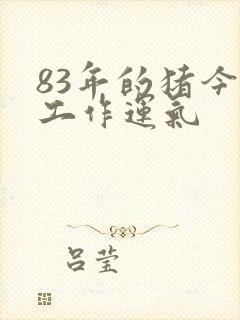 83年的猪今
工作运氣
吕莹